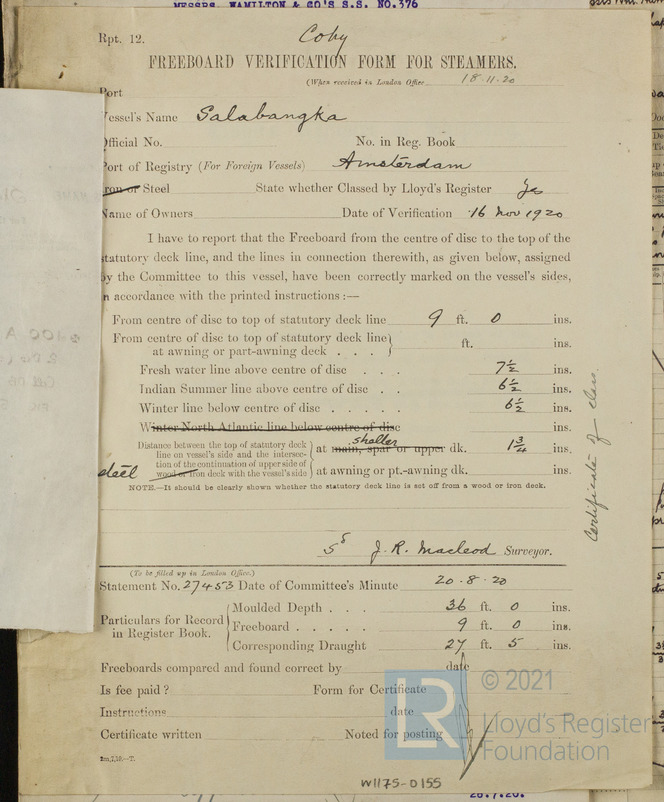 MESSRS. HAMILTON & CO'S S.S. NO.376
Rpt. 12.
Coby
FREEBOARD VERIFICATION FORM FOR STEAMERS.
(When received in London Office 18.11.20
Port
Vessel's Name Salabangka
Official No. No. in Reg. Book
Port of Registry (For Foreign Vessels) Amsterdam
Iron or Steel State whether Classed by Lloyd's Register Yes
Name of Owners Date of Verification 16 Nov 1920
I have to report that the Freeboard from the centre of disc to the top of the
statutory deck line, and the lines in connection therewith, as given below, assigned
by the Committee to this vessel, have been correctly marked on the vessel's sides,
in accordance with the printed instructions :—
From centre of disc to top of statutory deck line 9 ft. 0 ins.
From centre of disc to top of statutory deck line
at awning or part-awning deck . . . ft. ins.
Fresh water line above centre of disc . . . 7½ ins.
Indian Summer line above centre of disc . . 6½ ins.
Winter line below centre of disc . . . . . 6½ ins.
Winter North Atlantic line below centre of disc ins.
Distance between the top of statutory deck
line on vessel's side and the intersec-
tion of the continuation of upper side of
steel wood or iron deck with the vessel's side
shelter
at main, spar or upper dk. 1¾ ins.
at awning or pt.-awning dk. ins.
NOTE.—It should be clearly shown whether the statutory deck line is set off from a wood or iron deck.
Certificate of class.
J. R. Macleod Surveyor.
(To be filled up in London Office.)
Statement No. 27453 Date of Committee's Minute 20.8.20
Particulars for Record
in Register Book.
Moulded Depth . . . 36 ft. 0 ins.
Freeboard . . . . . 9 ft. 0 ins.
Corresponding Draught 27 ft. 5 ins.
Freeboards compared and found correct by date
Is fee paid ? Form for Certificate
Instructions date
Certificate written Noted for posting
2m,7,19.—T.
LR
© 2021
Lloyd's Register
Foundation
W1175-0155
28.7.20.